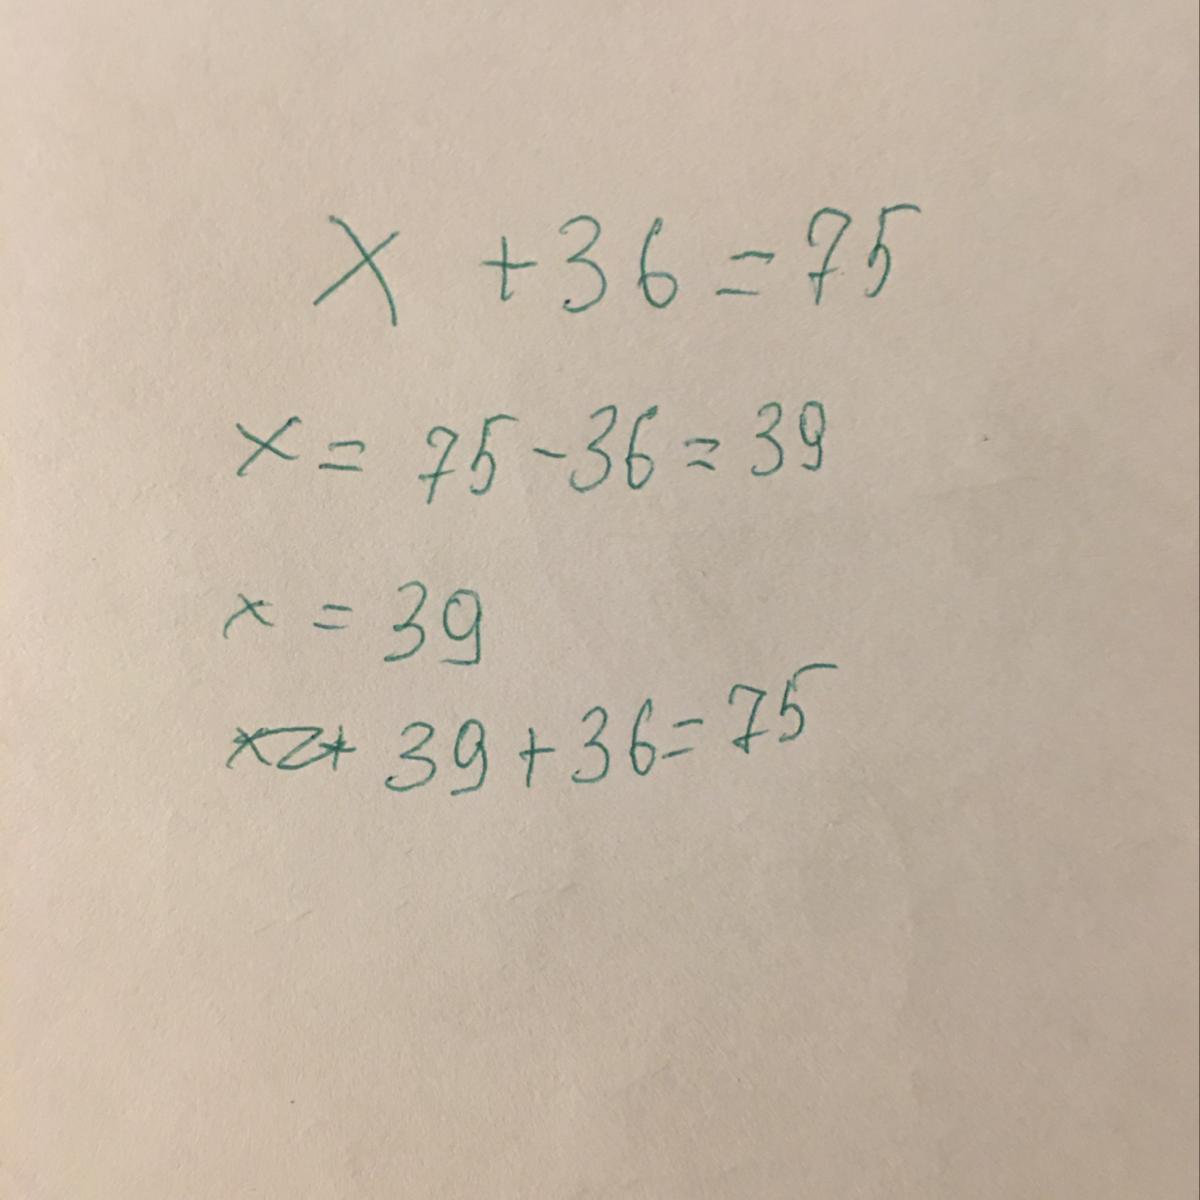 x + 36 = 75
x = 75 - 36 = 39
x = 39
39 + 36 = 75